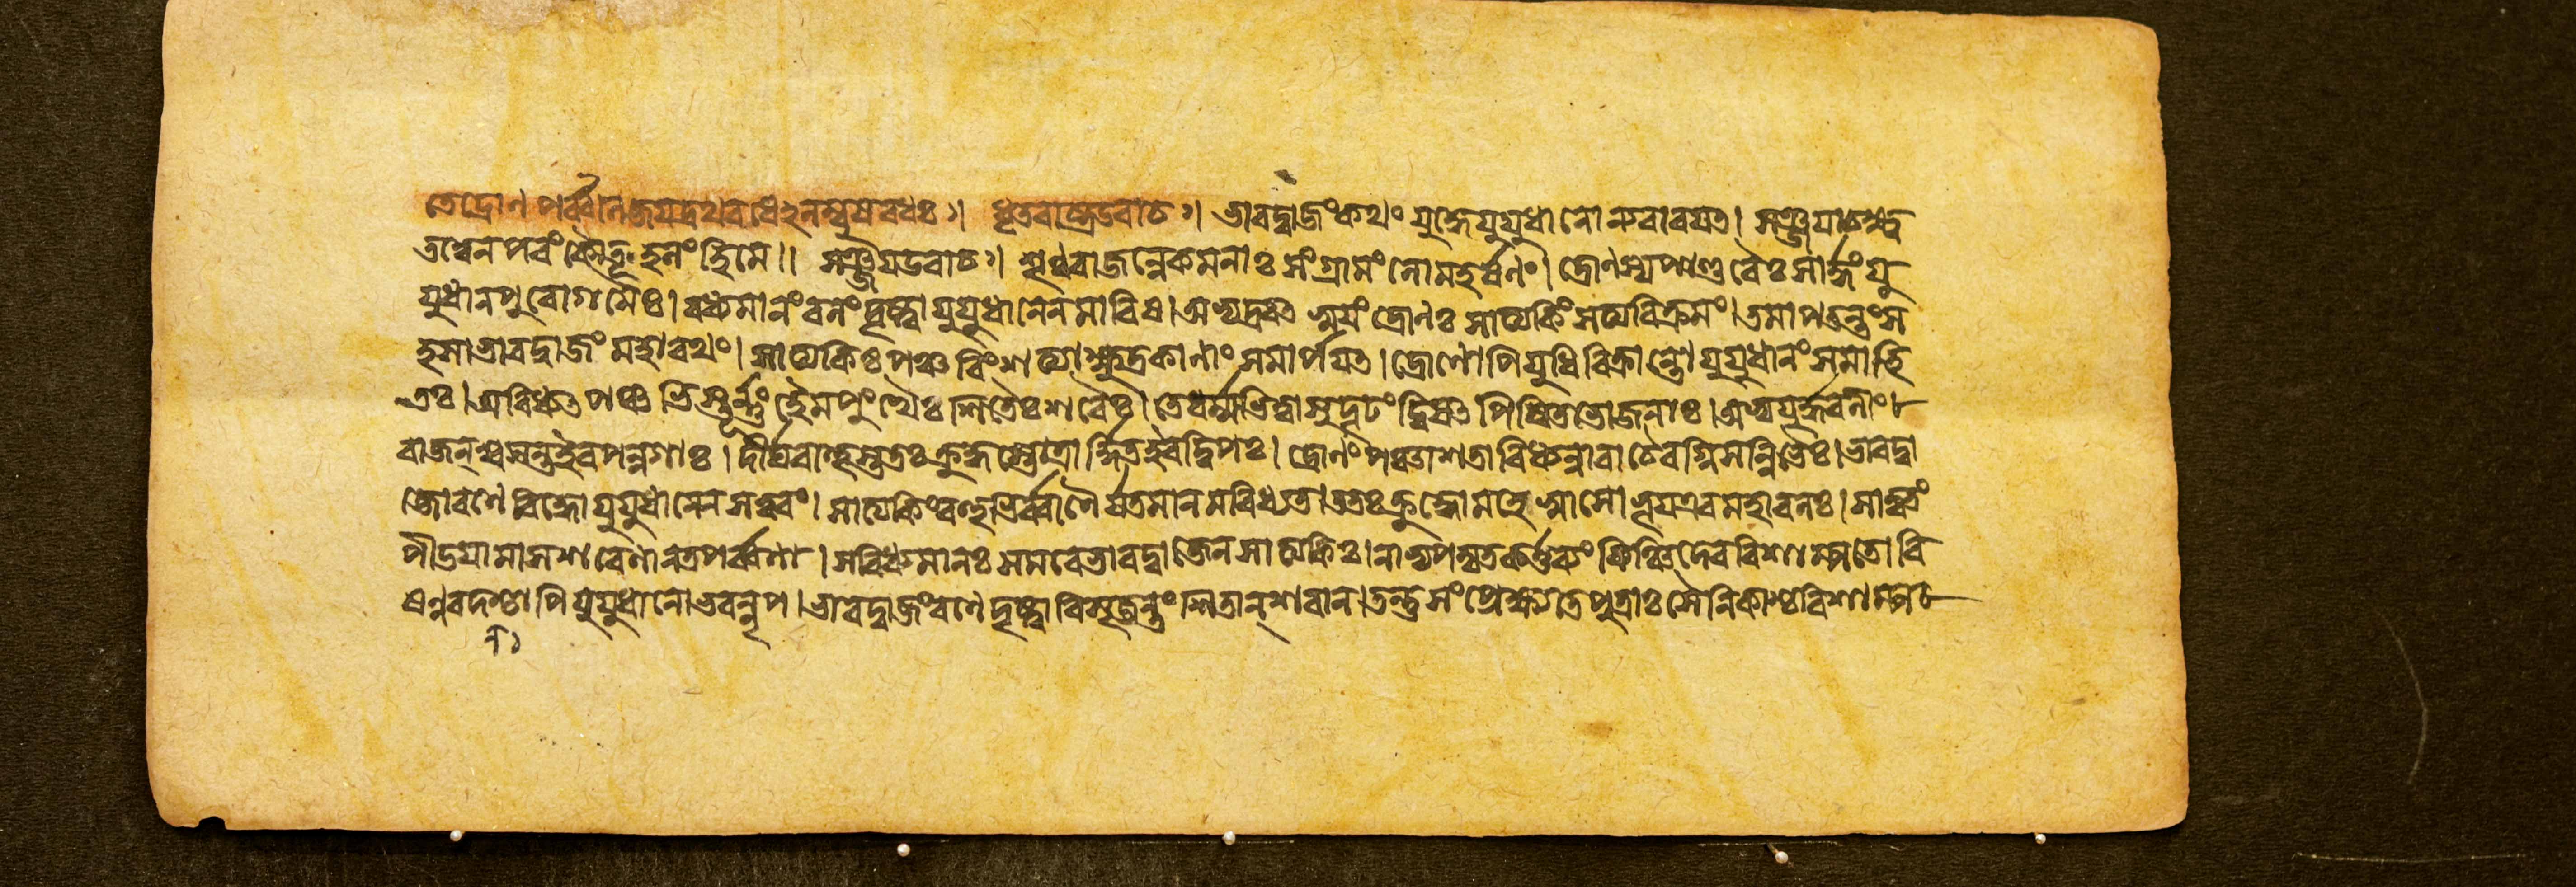 তে দ্রোণপর্ব্বণি জয়দ্রথবধেঽলম্বুষবধঃ। ধৃতরাষ্ট্র উবাচ। ভারদ্বাজং কথং যুদ্ধে যুযুধানো ন্যবারয়ত। সঞ্জয়াচক্ষ্ব
তত্ত্বেন পরং কৌতূহলং হি মে।। সঞ্জয় উবাচ। শৃণু রাজন্নেকমনাঃ সংগ্রামং লোমহর্ষণং। দ্রোণস্য পাণ্ডবৈঃ সার্দ্ধং যু
যুধানপুরোগমৈঃ। বধ্যমানং বলং দৃষ্ট্বা যুযুধানেন মারিষ। অভ্যদ্রবত স্বয়ং দ্রোণঃ সাত্যকিং সত্যবিক্রমং। তমাপতন্তং স
হসা ভারদ্বাজং মহারথং। সাত্যকিঃ পঞ্চবিংশত্যা ক্ষুদ্রকাণাং সমার্পয়ত। দ্রোণোপি যুধি বিক্রান্তো যুযুধানং সমাহি
তঃ। অবিধ্যত পঞ্চভিস্তূর্ণ্ণং হেমপুংখৈঃ শিতৈঃ শরৈঃ। তে বর্ম্ম ভিত্বা সুদৃঢং দ্বিষতপিশিতভোজনাঃ। অভ্যযুর্দ্ধরণীং
রাজন্ শ্বসন্ত ইব পন্নগাঃ। দীর্ঘবাহুস্ততঃ ক্রুদ্ধস্তোত্রার্দ্দিত ইব দ্বিপঃ। দ্রোণং পঞ্চাশতাবিধ্যন্নারাচৈরগ্নিসন্নিভৈঃ। ভারদ্বা
জো রণে বিদ্ধো যুযুধানেন সত্বরং। সাত্যকিং বহুভির্ব্বাণৈর্যতমানমবিধ্যত। ততঃ ক্রুদ্ধো মহেষ্বাসো ভূয় এব মহাবলঃ। সাত্বতং
পীডয়ামাস শরেণানতপর্ব্বণা। স বিধ্যমানঃ সমরে ভারদ্বাজেন সাত্যকিঃ। নাভ্যপদ্যত কর্ত্তব্যং কিঞ্চিদেব বিশাম্পতে। বি
ষণ্ণবদনশ্চাপি যুযুধানোভবন্নৃপ। ভারদ্বাজং রণে দৃষ্ট্বা বিসৃজন্তং শিতান্ শরান। তন্তু সংপ্রেক্ষ্য তে পুত্রাঃ সৈনিকাশ্চ বিশাম্প